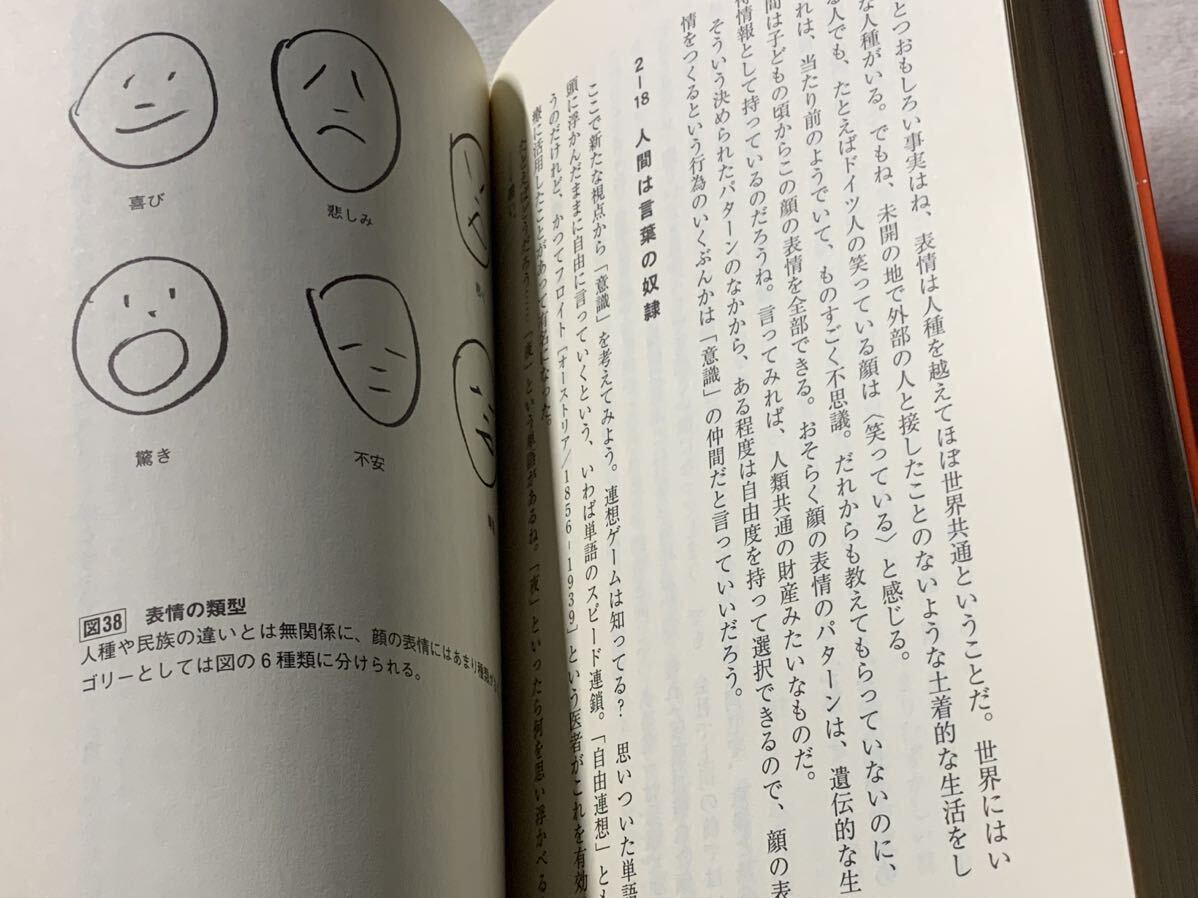 とつおもしろい事実はね、表情は人種を越えてほぼ世界共通ということだ。世界にはい
な人種がいる。でもね、未開の地で外部の人と接したことのないような土着的な生活をし
る人でも、たとえばドイツ人の笑っている顔は〈笑っている〉と感じる。
れは、当たり前のようでいて、ものすごく不思議。だれからも教えてもらっていないのに、
間は子どもの頃からこの顔の表情を全部できる。おそらく顔の表情のパターンは、遺伝的な生
得情報として持っているのだろうね。言ってみれば、人類共通の財産みたいなものだ。
そういう決められたパターンのなかから、ある程度は自由度を持って選択できるので、顔の表
情をつくるという行為のいくぶんかは「意識」の仲間だと言っていいだろう。
2-18 人間は言葉の奴隷
ここで新たな視点から「意識」を考えてみよう。連想ゲームは知ってる? 思いついた単語
頭に浮かんだままに自由に言っていくという、いわば単語のスピード連鎖。「自由連想」とも
うのだけれど、かつてフロイト[オーストリア/1856-1939]という医者がこれを有効
療に活用したことがあって有名になった。
たとえばどうだろう……「夜」という単語があるね。「夜」といったら何を思い浮かべる
喜び
悲しみ
驚き
不安
図38 表情の類型
人種や民族の違いとは無関係に、顔の表情にはあまり種類が
ゴリーとしては図の6種類に分けられる。